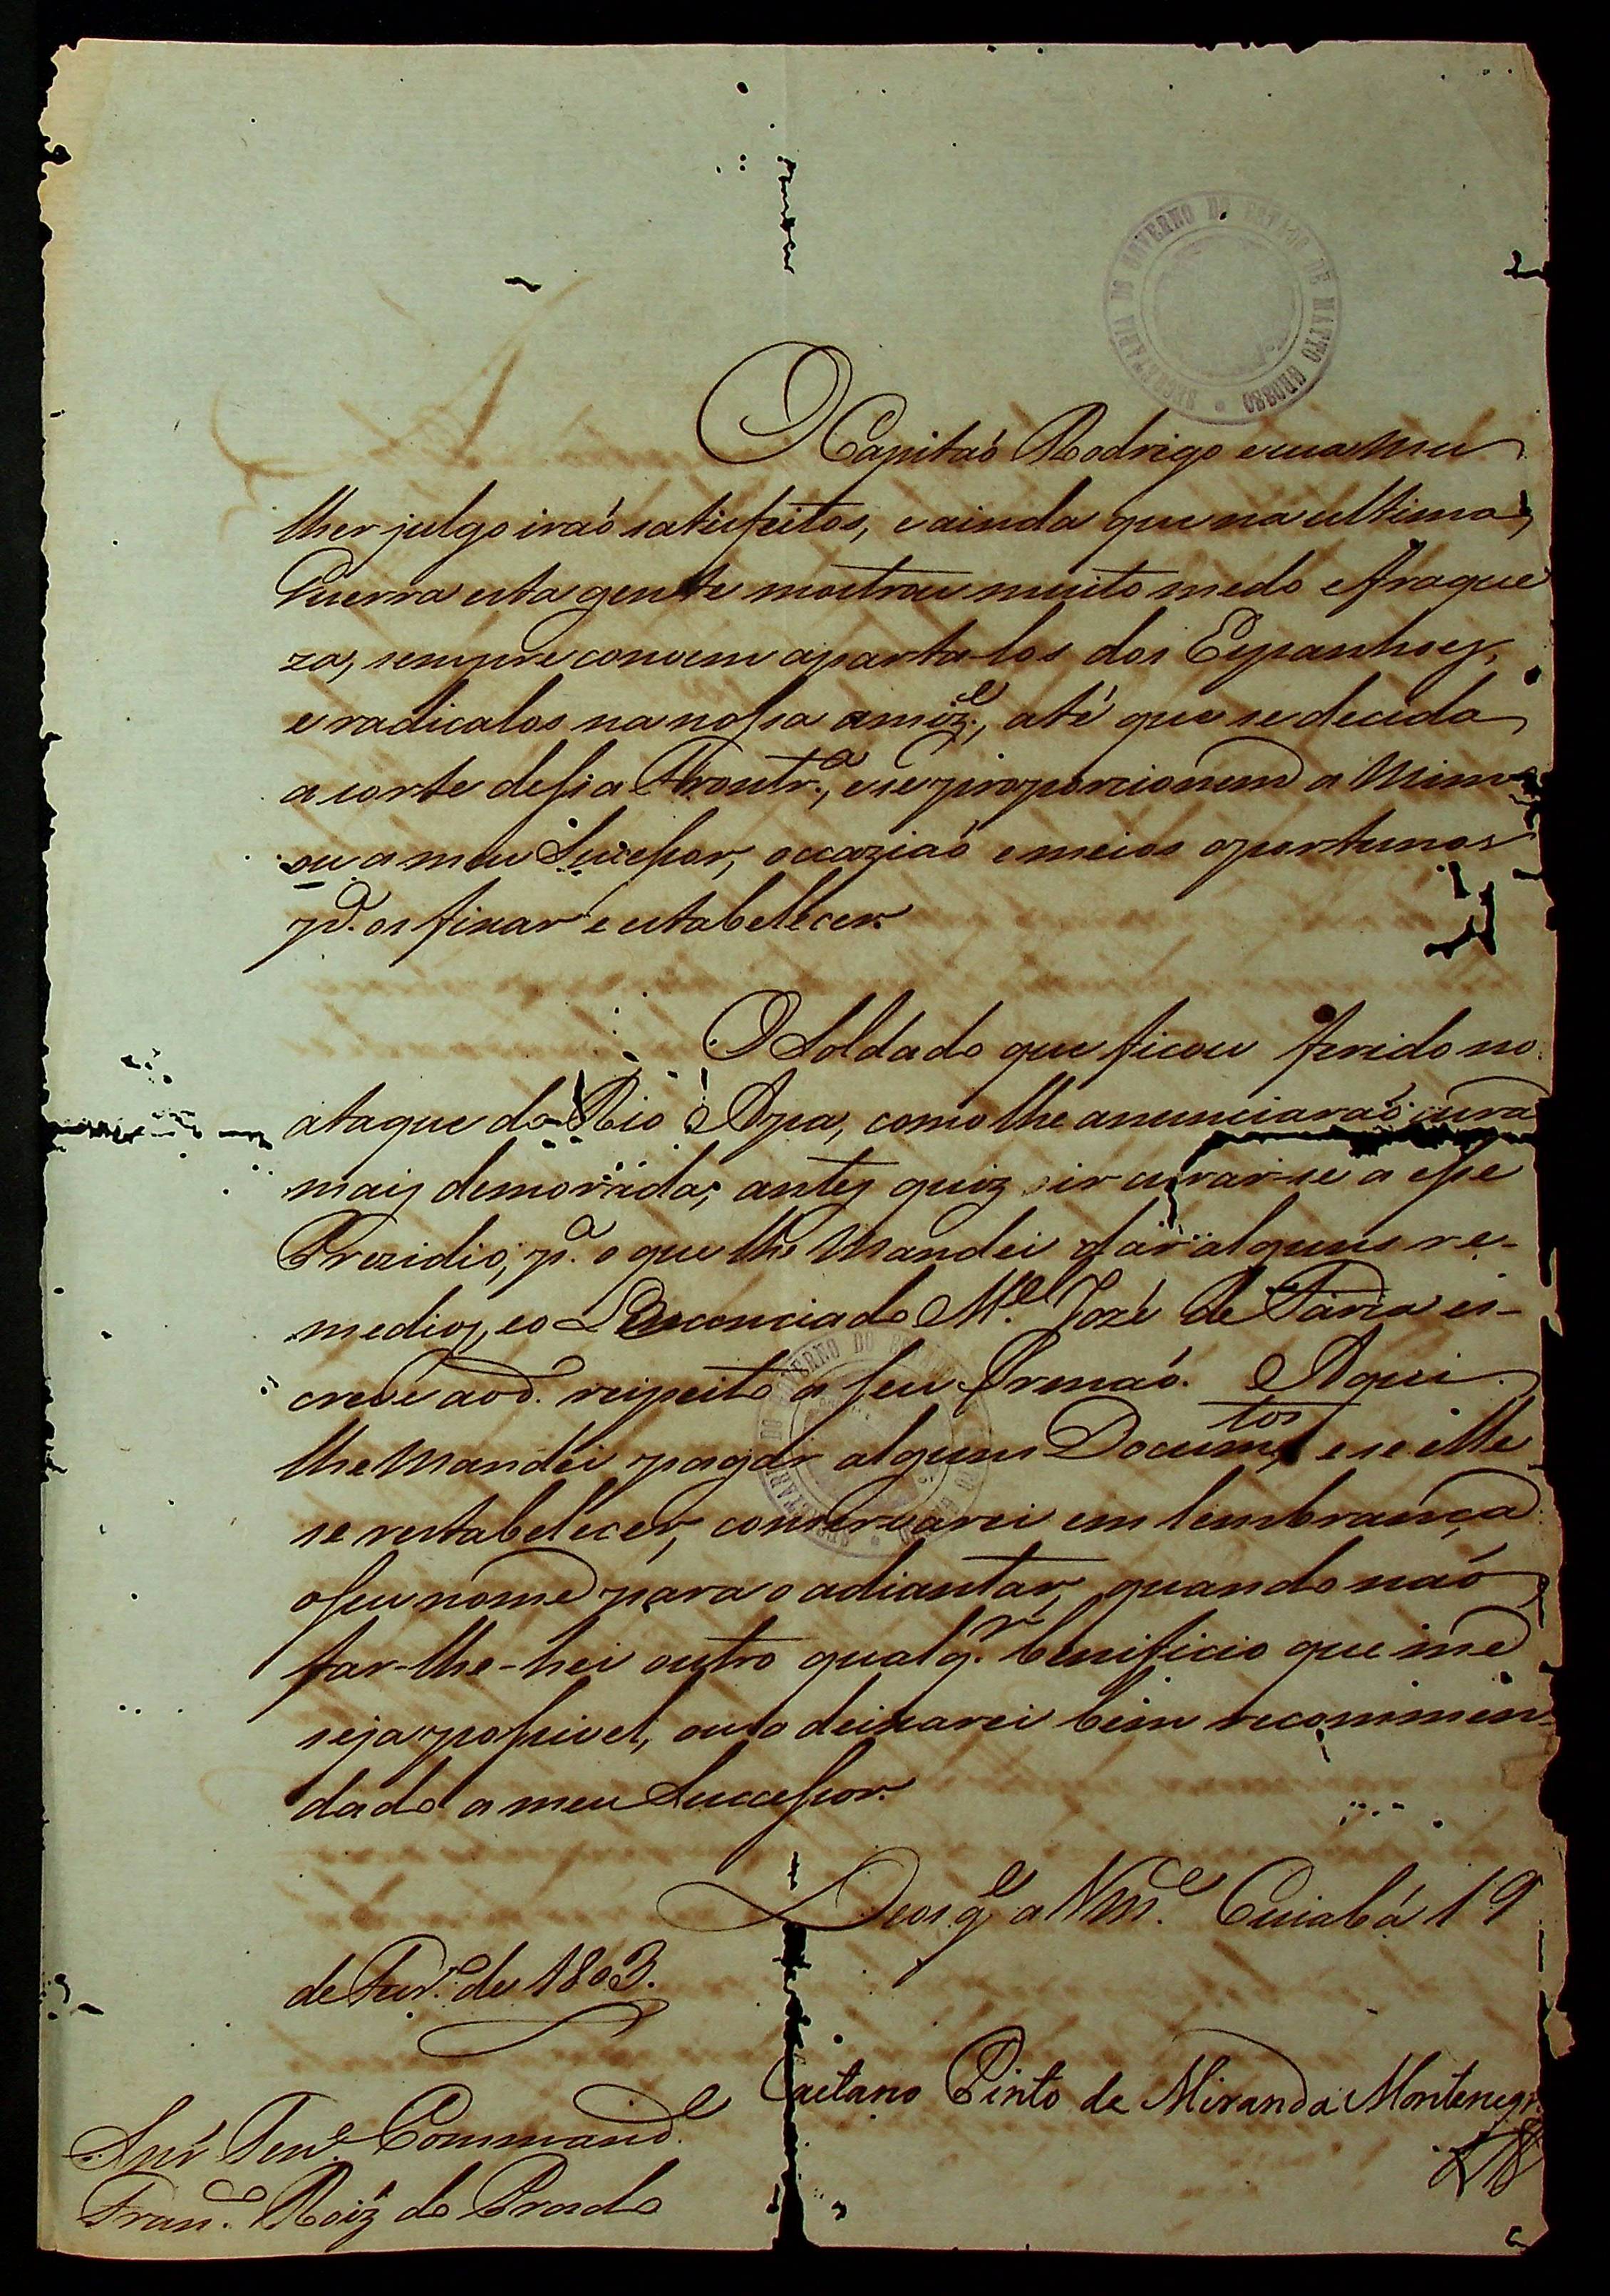 SECRETARIA DO GOVERNO DO ESTADO DE MATTO GROSSO
O Capitaõ Rodrigo e sua Mu
lher julgo iraõ satisfeitos, e ainda que na ultima
Guerra esta gente mostrou muito medo e fraque
za, sempre convem aparta-los dos Espanhoes,
e radicalos na nossa amiz.e, até que se decida
a sorte dessa Frontr.a, e se proporcionem a Mim
ou a meu Sucessor, occaziaõ e meios oportunos
p.a os fixar e estabelecer.
O Soldado que ficou ferido no
ataque do Rio Apa, como lhe anunciaraõ cura
mais demorada, antes quiz ir curar-se a esse
Prezidio, p.a o que lhe Mandei dar alguns re-
medios, e o Licenciado M.el Jozé de Faria es-
creve ao d. respeito a seu Irmaõ. Aqui
lhe Mandei pagar alguns Docum.tos, e se elle
se restabelecer, conservarei em lembrança
o seu nome para o adiantar, quando naõ
far-lhe-hei outro qualq.r benificio que me
seja possivel, ou o deixarei bem recommen
dado a meu Successor.
Deos g.e a Vm.ce Cuiabá 19
de Fevr.o de 1803.
Caetano Pinto de Miranda Montenegr
Snr Ten.e Command.e
Fran.co Roiz do Prado